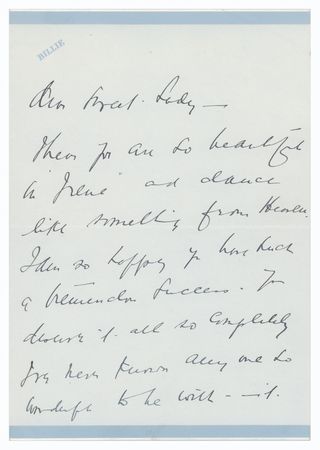 BILLIE
Dear Sweet Lady —
You are so beautiful
in "Irene" and dance
like something from Heaven.
I am so happy you have such
a tremendous success. You
deserve it all so completely
I've never known any one so
wonderful to be with — it.